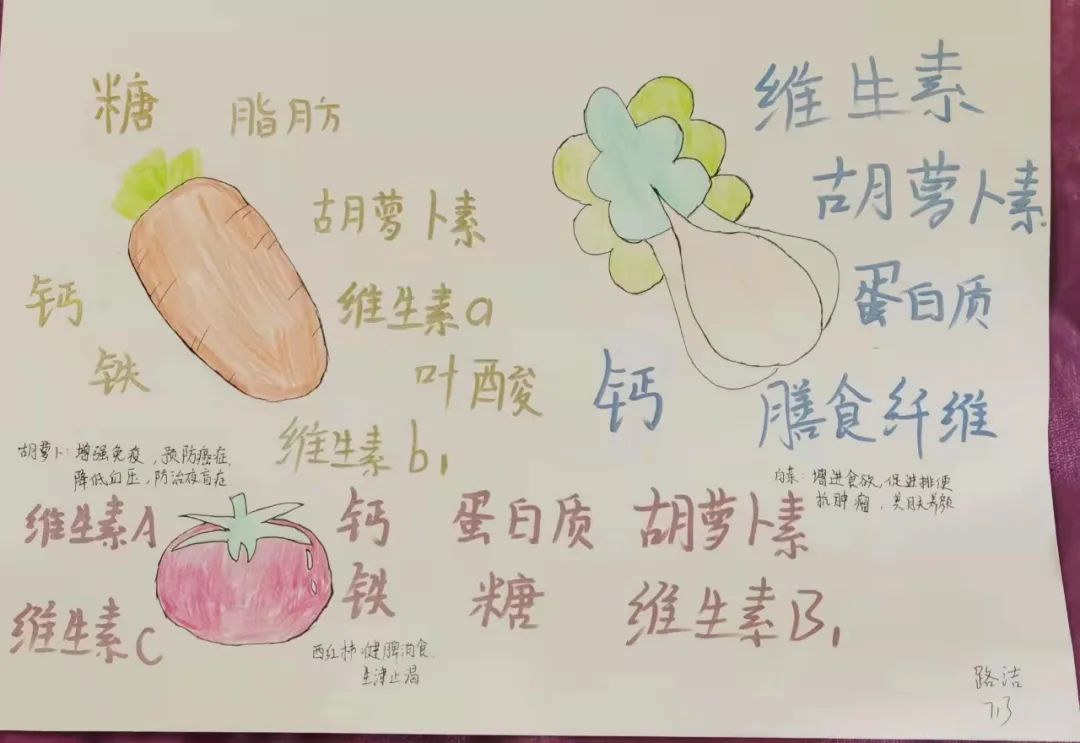 糖 脂肪
胡萝卜素
钙 维生素a
铁 叶酸
维生素b1
胡萝卜：增强免疫，预防癌症，
降低血压，防治夜盲症
维生素
胡萝卜素
蛋白质
钙 膳食纤维
白菜：增进食欲，促进排便
抗肿瘤，美肤养颜
维生素A 钙 蛋白质 胡萝卜素
维生素C 铁 糖 维生素B1
西红柿：健脾消食，
生津止渴
路洁
7.3